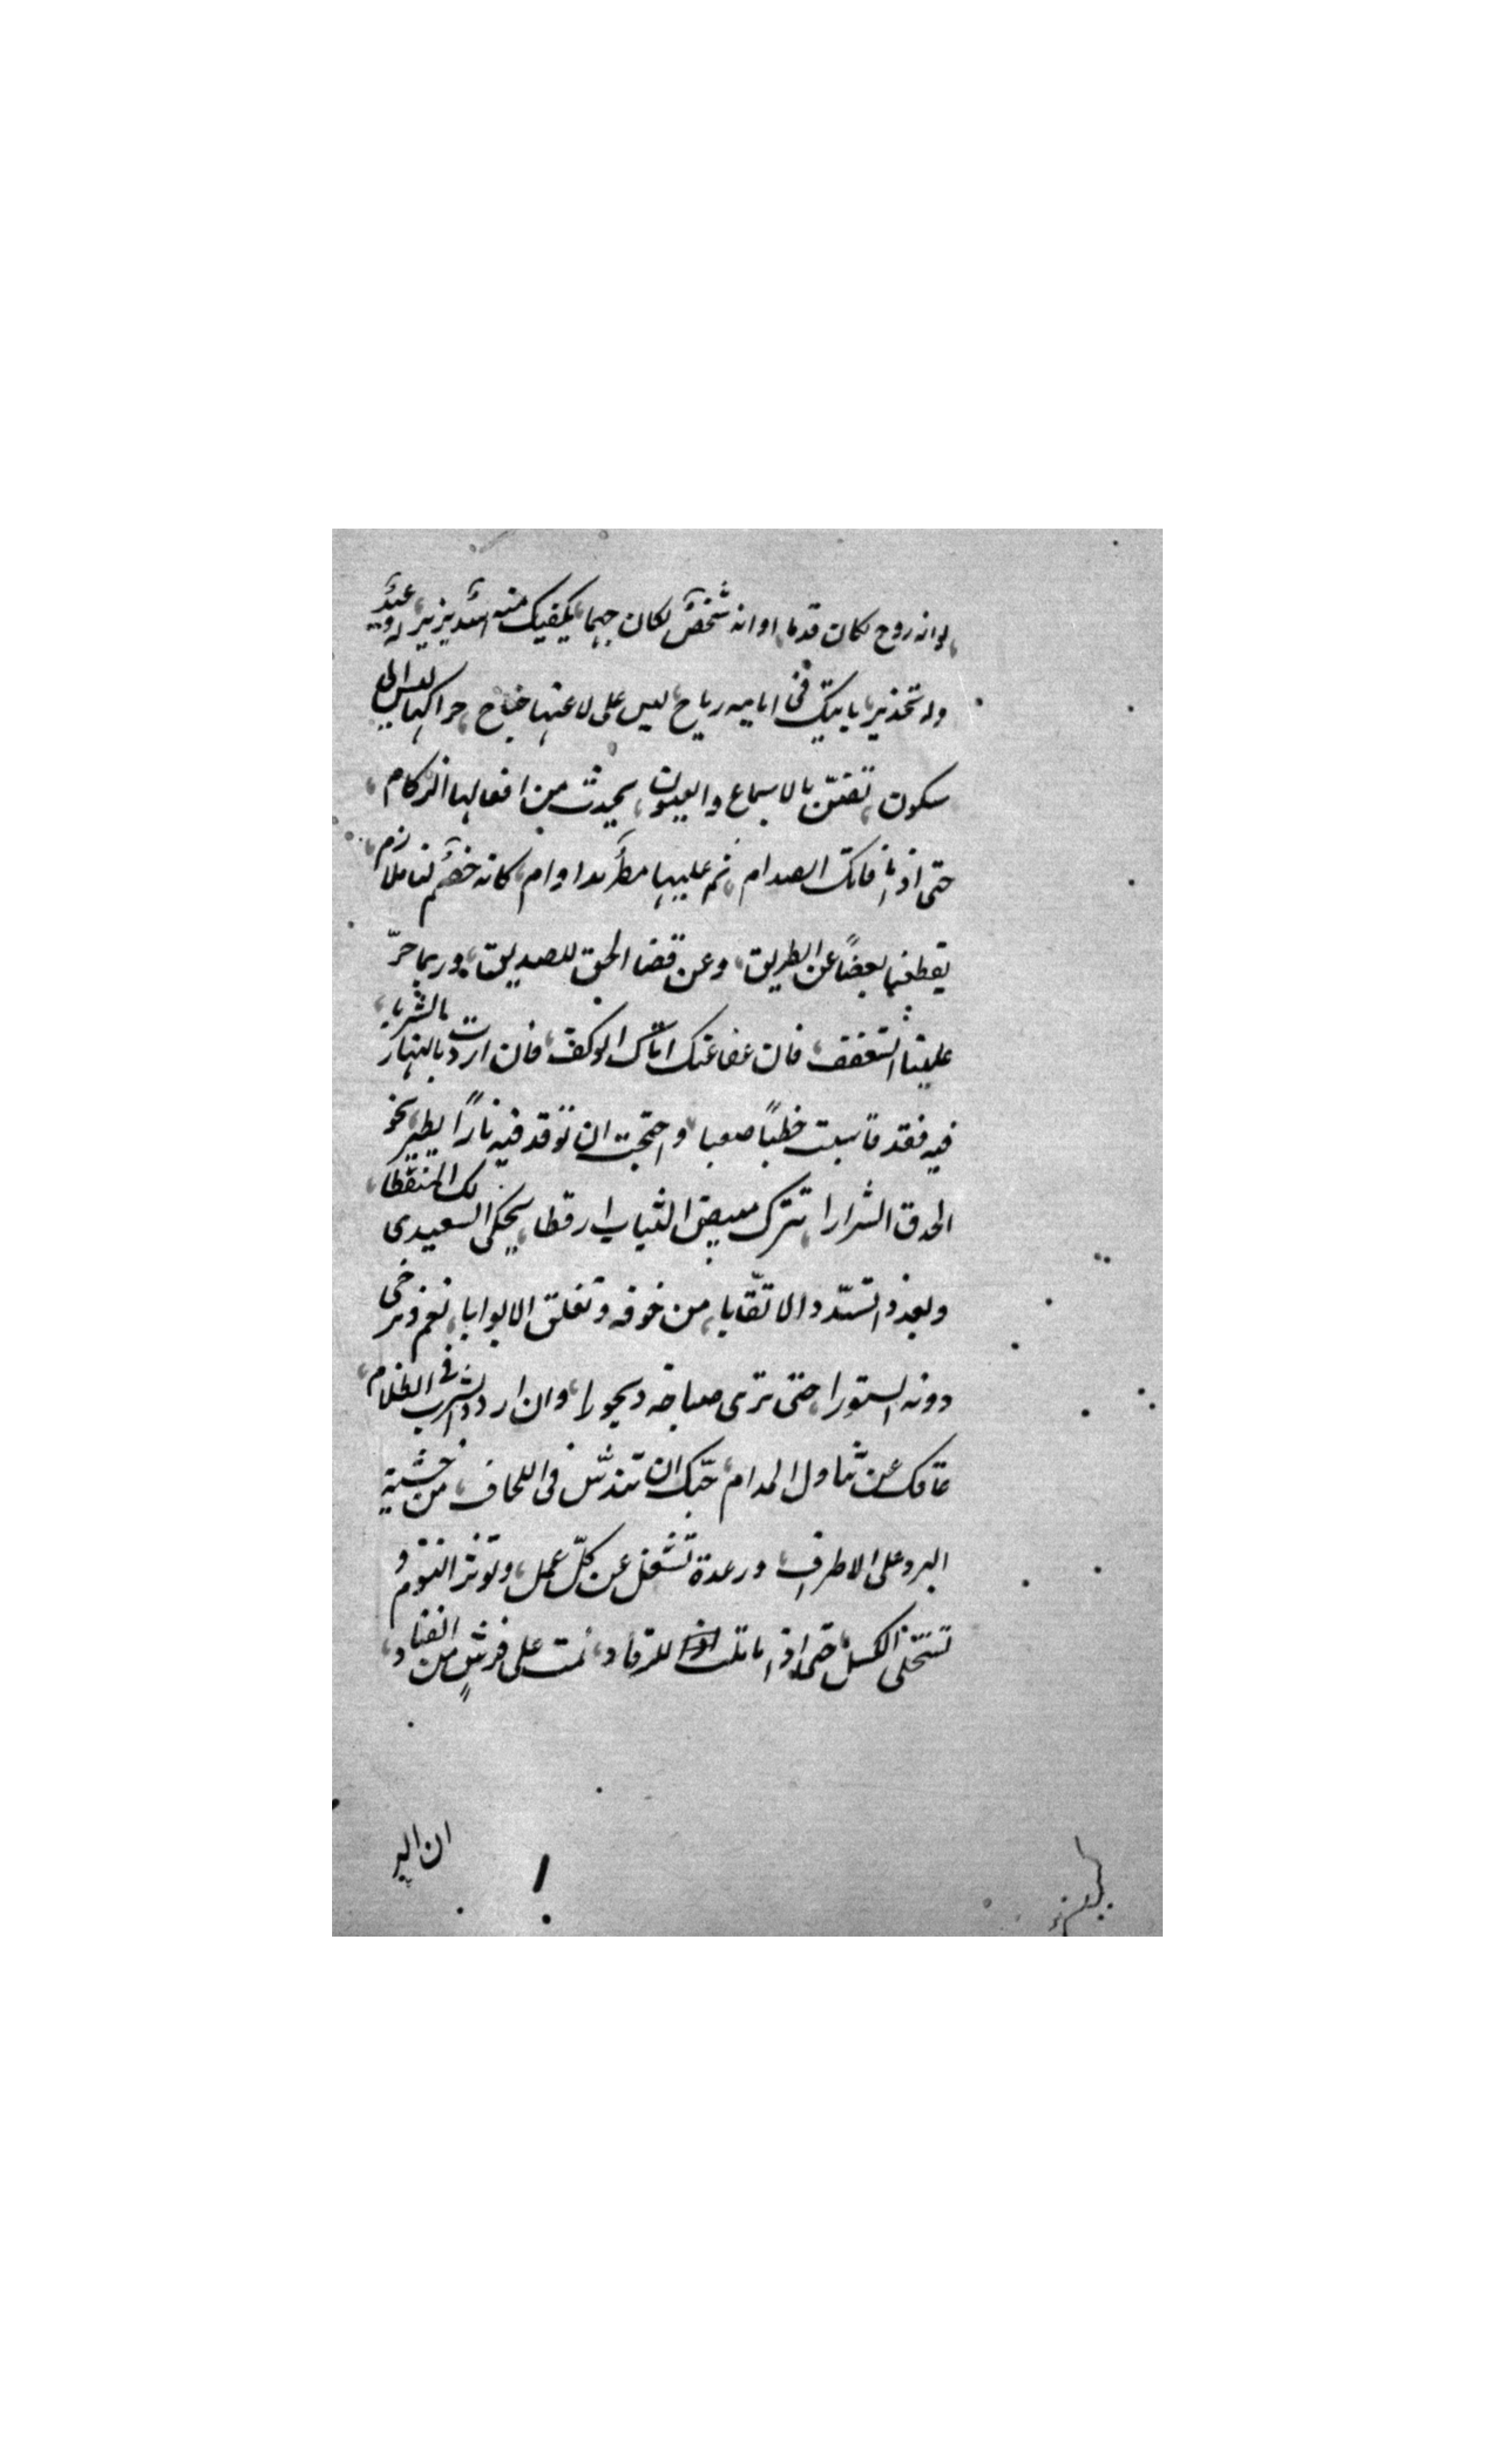 لوانه روح لكان قدما، اوانه شخصٌ لكان جهما، يكفيك منه انه يزير، له وعيد
وله تحذير، ياتيك فى اياميه رياح، ليس على لاعنها جناح، حراكها ليس الى
سكون، تفتنّ بالاسماع والعيون، يحدث من افعالها الزكام،
حتى اذا فاتك الصدام، ثم عليها مطرٌ مداوم، كانه خصٌم لنا ملازم،
يقطعنا بعضاً عن الطريق، وعن قضا الحق للصديق، وربما خرّ
علينا السقف، فان عفا عنك اتاك الوكف، فان اردت بالنهار الشربا،
فيه فقد قاسيت خطباً صعبا، واحتجت ان توقد فيه ناراً، يطير نحو
الحدق الشرارا، تترك مبيض الثياب ارقطا، يحكى السعيدى لك المنقطا،
وبعد ذا تسدّد الاتقّابا، من خوفه وتغلق الابوابا، نعم وترخى
دونه الستورا، حتى ترى صباحه ديجورا، وان اردت الشرب فى الظلام،
عاقك عن تناول المدام، حبّك ان تندسّ فى اللحاف، من خشية
البرد على الاطراف، ورعدة تشغل عن كلّ عمل، وتوثر النوم و
تستحلى الكسل، حتى اذا ملت للرقاد، نمت على فرشٍ من القتاد،
ان البر